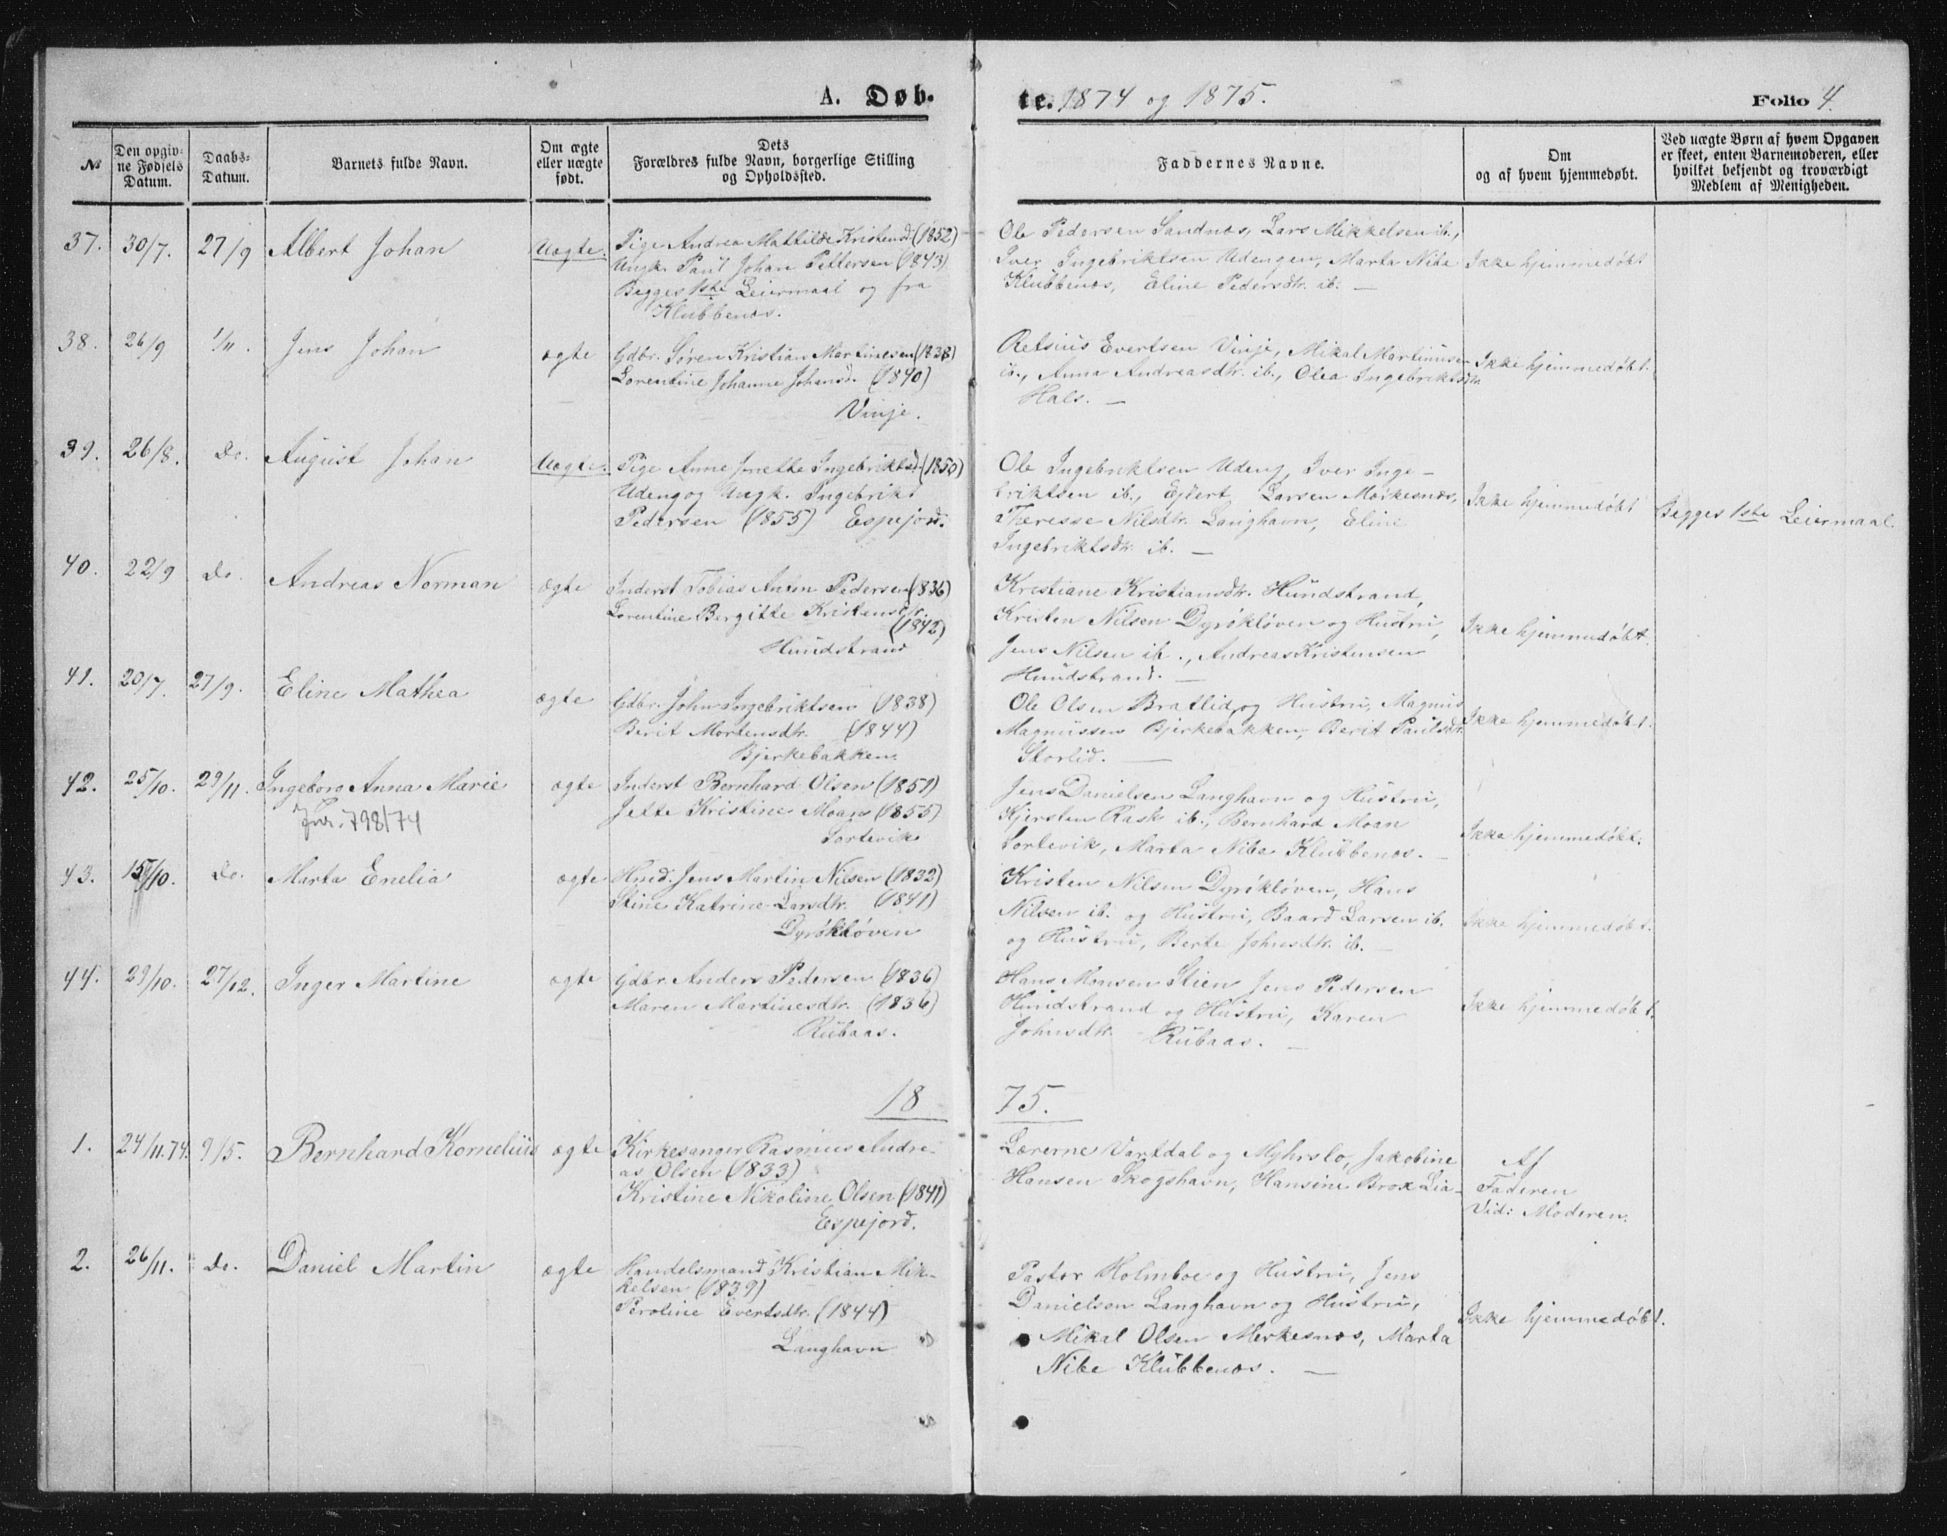 A. Døb-
te. 1874 og 1875.
Folio 4.
No
Den opgiv-
ne Fødsels
Datum.
Daabs-
Datum.
Barnets fulde Navn.
Om ægte
eller uægte
født.
Dets
Forældres fulde Navn, borgerlige Stilling
og Opholdssted.
Faddernes Navne.
Om
og af hvem hjemmedøbt.
Ved uægte Børn af hvem Opgaven
er skeet, enten Barnemoderen, eller
hvilket bekjendt og troværdigt
Medlem af Menigheden.
37. 30/7. 27/9 Albert Johan Uægte.
Pige Andrea Mathilde Kristensd. (1852)
Ungk. Paul Johan Pettersen (1843)
Begges 1ste Leiermaal og fra
Klubbenæs.
Ole Pedersen Sandnæs, Lars Mikkelsen ib.,
Iver Ingebriktsen Udengen, Marta Nibe
Klubbenæs, Eline Pedersdtr. ib. —
Ikke hjemmedøbt
38. 26/9 1/11. Jens Johan ægte
Gdbr. Søren Kristian Martinesen (1838)
Lorentine Johanne Johansd. (1840)
Vinje.
Retsius Evertsen Vinje, Mikal Martinusen
ib., Anna Andreasdtr. ib., Olea Ingebriktsdtr.
Hals. —
Ikke hjemmedøbt.
39. 26/8. Do. August Johan Uægte.
Pige Anne Jnette Ingebriktsd. (1850)
Udeng og Ungk. Ingebrikt
Pedersen (1855) Espejord.
Ole Ingebriktsen Udeng, Iver Inge-
briktsen ib., Ejlert Larsen Mørkesnæs,
Theresse Nilsdtr. Langhavn, Eline
Ingebriktsdtr. ib. —
Ikke hjemmedøbt
Begges 1ste Leiermaal
40. 22/9 Do. Andreas Norman ægte
Inderst Tobias Anton Pedersen (1836)
Lorentine Bergitte Kristensdtr.
(1842)
Hundstrand
Kristiane Kristiansdtr. Hundstrand,
Kristen Nilsen Dyrøkløven og Hustru,
Jens Nilsen ib., Andreas Kristensen
Hundstrand. —
Ikke hjemmedøbt.
41. 20/7. 27/9. Eline Mathea ægte
Gdbr. John Ingebriktsen (1838)
Berit Mortensdtr. (1844)
Bjerkebakken
Ole Olsen Bratlid og Hustru, Magnus
Magnussen Bjerkebakken, Berit Paulsdtr.
Storlid. —
Ikke hjemmedøbt.
42. 25/10. 29/11. Ingeborg Anna Marie ægte
Jnr. 798/74
Inderst Bernhard Olsen (1851)
Jette Kristine Moans (1855)
Sørtevik
Jens Danielsen Langhavn og Hustru,
Kjersten Rask ib., Bernhard Moan
Sortevik, Marta Nibe Klubbenæs. —
Ikke hjemmedøbt.
43. 15/10. Do. Marta Enelia ægte
Hmd. Jens Martin Nilsen (1832)
Stine Katrine Larsdtr. (1841)
Dyrøkløven
Kristen Nilsen Dyrøkløven, Hans
Nilsen ib. og Hustru, Baard Larsen ib.
og Hustru, Berte Johnsdtr. ib. —
Ikke hjemmedøbt.
44. 29/10. 27/12. Inger Martine ægte
Gdbr. Anders Pedersen (1836)
Maren Martinesdtr. (1836)
Rubaas.
Hans Monsen Stien, Jens Pedersen
Hundstrand og Hustru, Karen
Johnsdtr. Rubaas. —
Ikke hjemmedøbt.
18 75.
1. 24/11.74. 9/5. Bernhard Kornelius ægte
Kirkesanger Rasmus Andre-
as Olsen (1833)
Kristine Nikoline Olsen (1841)
Espejord.
Lærerne Vartdal og Myhrslo, Jakobine
Hansen Skogshavn, Hansine Brox Lia-
Af
Faderen
Vid: Moderen.
2. 26/11. Do. Daniel Martin ægte
Handelsmand Kristian Mik-
kelsen (1839)
Peroline Evertsdtr. (1844)
Langhavn
Pastor Holmboe og Hustru, Jens
Danielsen Langhavn og Hustru,
Mikal Olsen Mørkesnæs, Marta
Nibe Klubbenæs. —
Ikke hjemmedøbt.